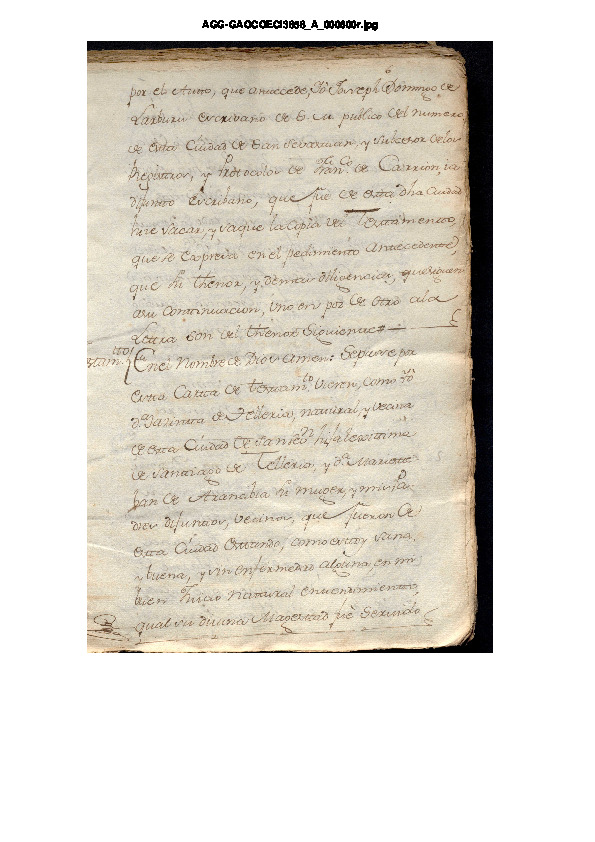 AGG-GAOCOECI3656_A_000600r.jpg
por el Autto, que antecede, Yo Joseph Domingo de
Larburu escrivano de S. M. publico del numero
de esta Ciudad de San Sevastian, y subcesor de los
Registros, y Protocolos de Fran.co de Carrion, ia
difunto escribano, que fue de esta dha Ciudad
hice sacar, y saque la copia del Testamento,
que se expresa en el pedimento antecedente,
que su thenor, y demas diligencias, que siguen
a su continuacion, uno en pos de otro a la
Lettra son del thenor siguiente
En el Nombre de Dios Amen: Sepasse por
esta Carta de testam.to vieren, como Yo
d.a de Telleria, natural, y vecina
de esta Ciudad de San hija lexitima
de Santiago de Telleria, y d.a Maria
de Aranibia su muger, y mis Pa
dres difuntos, vecinos, que fueron de
esta Ciudad estando, como estoy sana,
y buena, y sin enfermedad alguna, en mi
buen Juicio natural entendimiento,
qual su divina Magestad fue servido